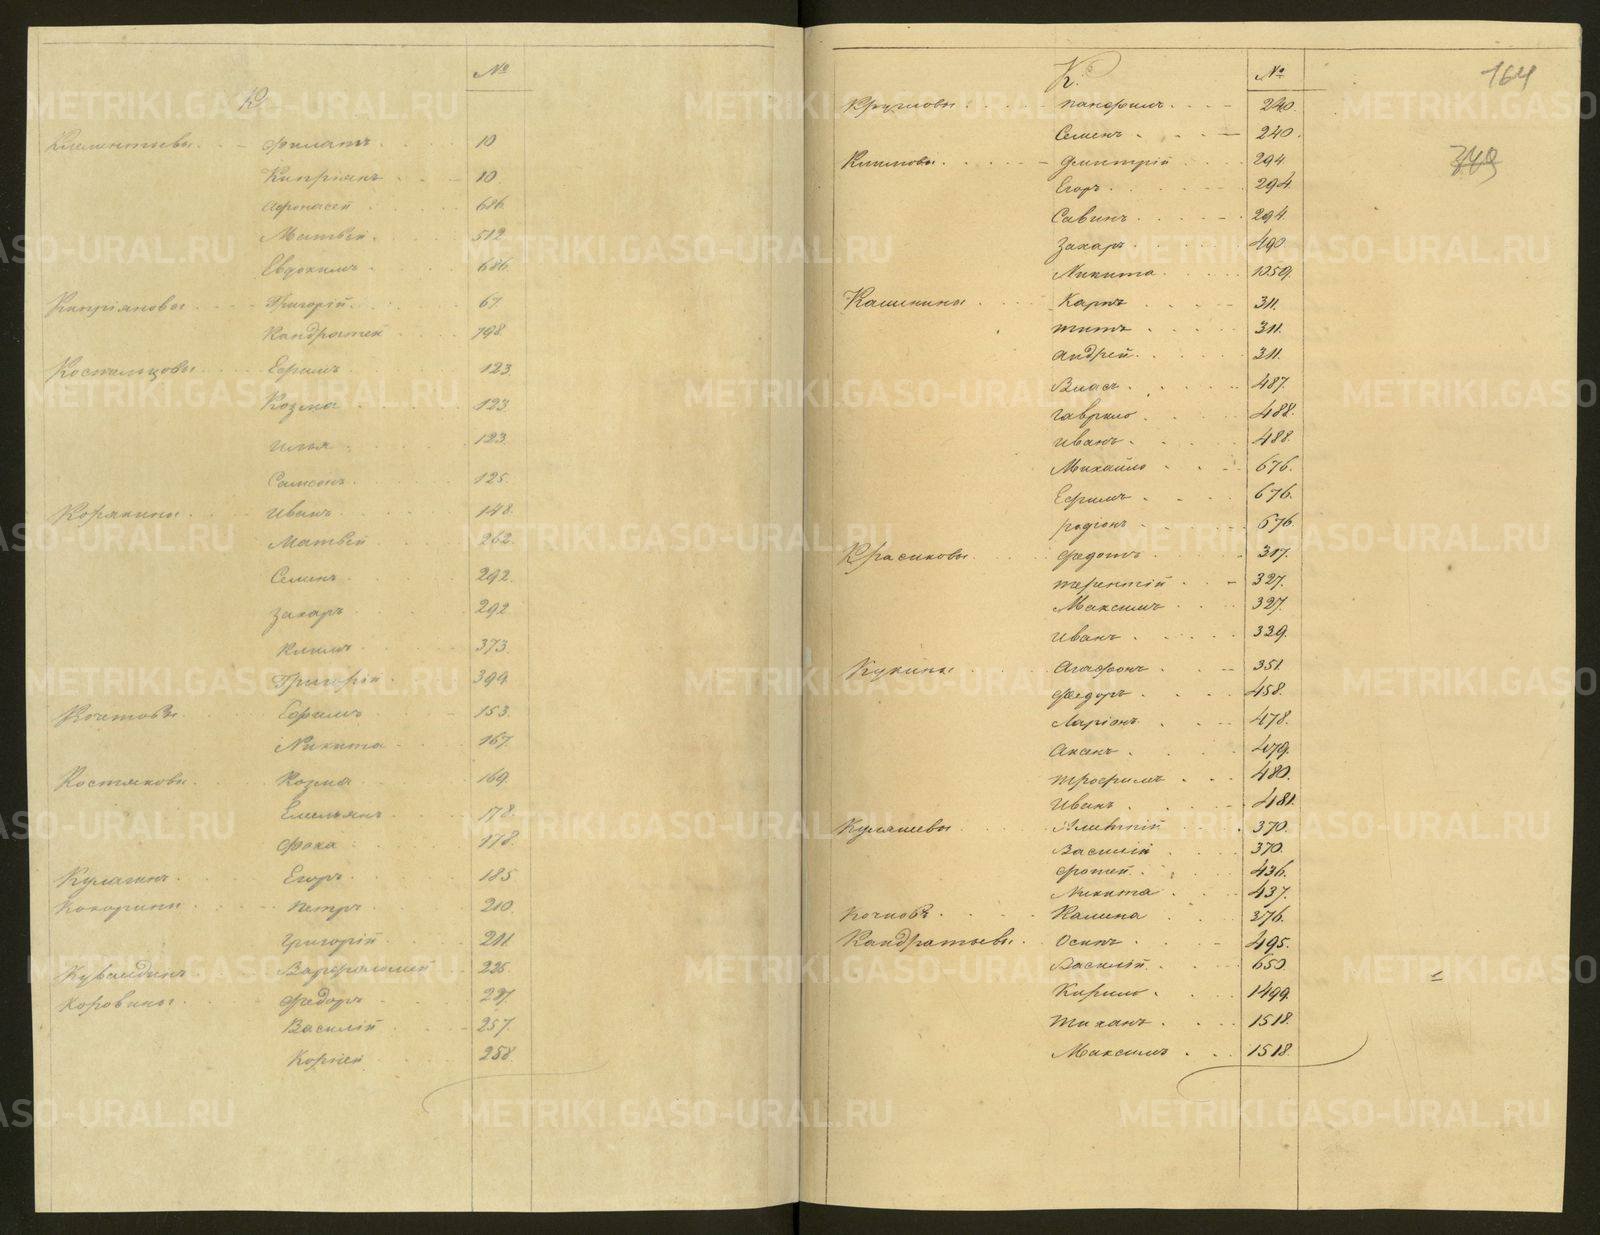 №
К.
Клементьевы Филатъ 10
Кипріянъ 10.
Афонасей 686.
Матвей 512
Евдокимъ 686.
Кипріяновы Григорій 67
Кандратей 798.
Костемцовы Ефимъ 123.
Козма 123.
Илья 123.
Самсонъ 125.
Корякины Иванъ 148.
Матвей 262.
Семенъ 292.
Захаръ 292
Климъ 373.
Григорій 394.
Кочтовы Ефимъ 153.
Никита 167.
Костяковы Козма 169.
Емельянъ 178.
Фока 178.
Кулагинъ Егоръ 185
Кокорины Петръ 210.
Григорій 211.
Кувалдинъ Варфоломей 225.
Коровины Федоръ 227.
Василій 257.
Корней 258.
К. № 164
Кругловы Панфилъ 240.
Семенъ 240.
Климовы Дмитрій 294
349
Егоръ 294.
Савинъ 294.
Захаръ 490.
Никита 1259.
Кашкины Карпъ 311.
Титъ 311.
Андрей 311.
Власъ 487.
Гаврило 488.
Иванъ 488.
Михайло 676.
Ефимъ 676.
Родіонъ 676.
Красиковы Федотъ 317.
Терентій 327.
Максимъ 327.
Иванъ 339.
Кукины Агафонъ 351.
Федоръ 458.
Ларіонъ 478.
Аксенъ 479.
Трофимъ 480.
Иванъ 481.
Куляшевы 370.
Василій 370.
Фотей 436.
Никита 437.
Кочновъ Калина 376.
Кандратьевы Осипъ 495.
Василій 650.
Кирило 1499.
Тиханъ 1518.
Максимъ 1518.
METRIKI.GASO-URAL.RU